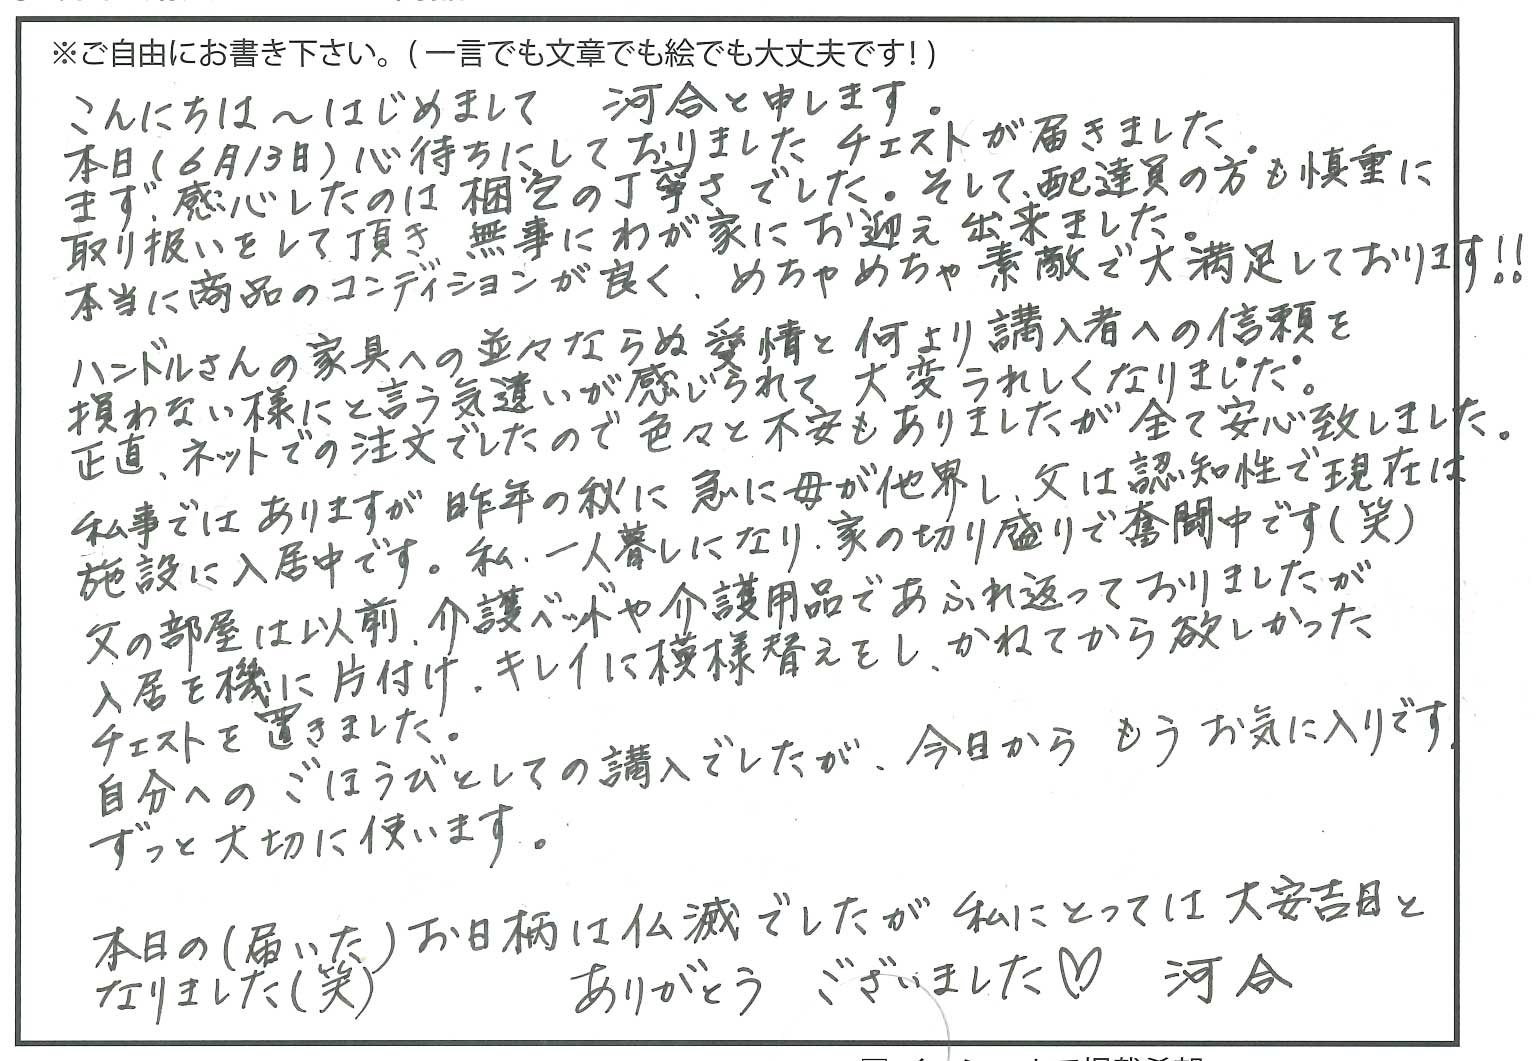 ※ご自由にお書き下さい。(一言でも文章でも絵でも大丈夫です!)
こんにちは〜はじめまして 河合と申します。
本日(6月13日)心待ちにしておりました チェストが届きました。
まず、感心したのは 梱包の丁寧さ でした。そして、配達員の方も慎重に
取り扱いをして頂き 無事に わが家に お迎え 出来ました。
本当に商品のコンディションが良く、めちゃめちゃ素敵で大満足しております!!
ハンドルさんの家具への並々ならぬ愛情と何より講入者への信頼を
損わない様にと言う気遣いが感じられて 大変うれしくなりました。
正直、ネットでの注文でしたので色々と不安もありましたが全て安心致しました。
私事では ありますが 昨年の秋に 急に母が他界し、父は認知性で現在は
施設に入居中です。私、一人暮しになり、家の切り盛りで奮闘中です(笑)
父の部屋は以前、介護ベッドや介護用品であふれ返っておりましたが
入居を機に片付け、キレイに模様替えをし、かねてから欲しかった
チェストを置きました。
自分への ごほうびとしての講入でしたが、今日から もう お気に入りです。
ずっと大切に使います。
本日の(届いた)お日柄は仏滅でしたが 私にとっては大安吉日と
なりました(笑) ありがとう ございました♡ 河合